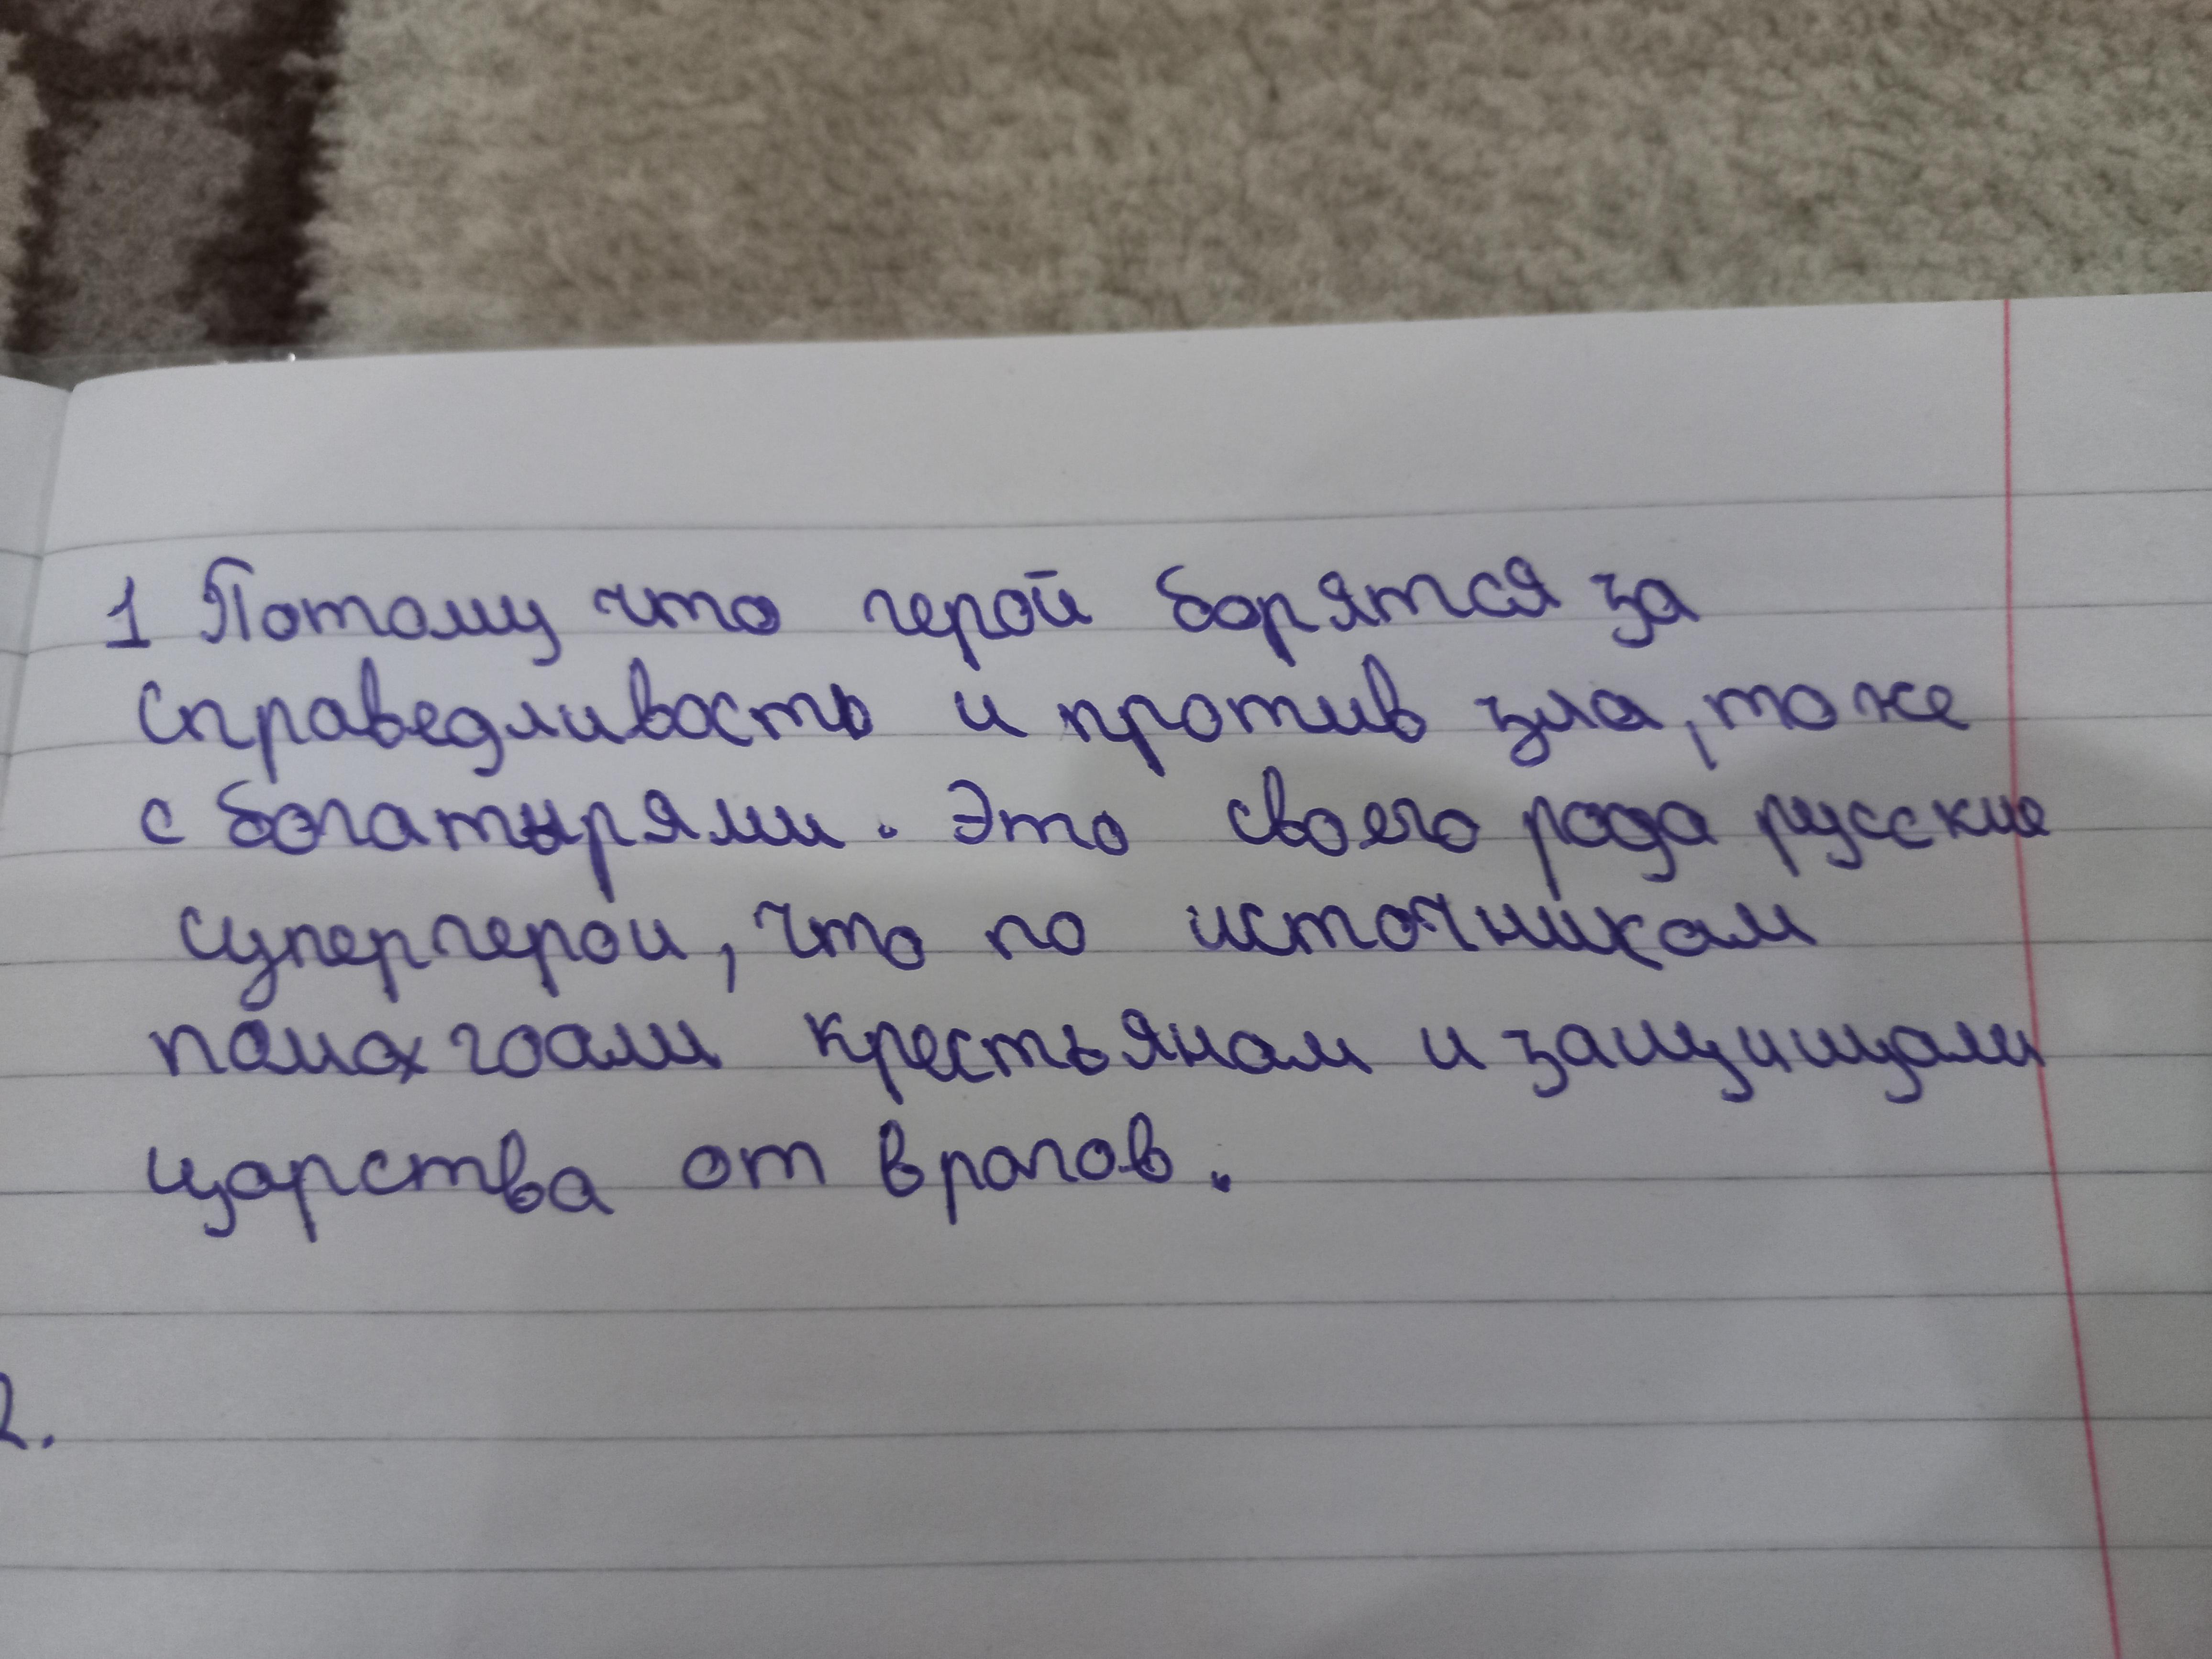 1 Потому что герой борятся за
справедливость и против зла, тоже
с богатырями. Это своего рода русские
супергерои, что по источникам
помогоали крестьянам и защищали
царства от врагов.
2.